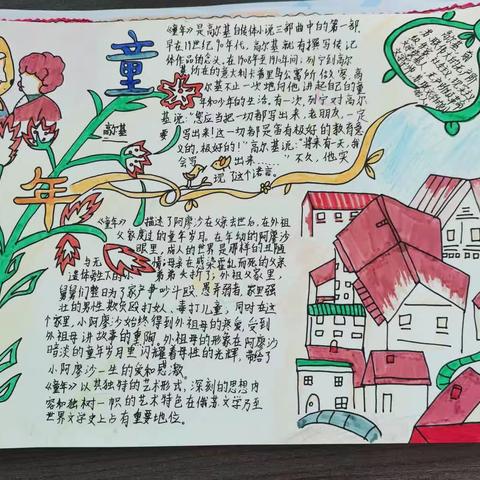 童年
高尔基
《童年》是高尔基自传体小说三部曲中的第一部.
早在19世纪90年代, 高尔基就有撰写传记
体作品的念头, 在1908年至1910年间, 列宁到高尔
基所在的意大利卡普里岛公寓所做客, 高
尔基不止一次地向他讲起自己的童
年和少年的生活. 有一次, 列宁对高尔
基说: "您应当把一切都写出来, 老朋友, 一定
要写出来! 这一切都是富有极好的教育意
义的, 极好的!" 高尔基说: "将来有一天, 我
会写出来……" 不久, 他实
现了这个诺言.
《童年》描述了阿廖沙在父亲去世后, 在外祖
父家度过的童年岁月. 在年幼的阿廖沙
眼里, 成人的世界是那样的丑陋
与无情: 母亲在感染霍乱而死的父亲
遗体
着弟大打了; 外祖父家里,
舅舅们整日为了家产争吵斗殴, 愚弄弱者, 家里强
壮的男性欺负殴打女人、毒打儿童; 同时在这
个家里, 小阿廖沙始终得到外祖母的疼爱, 受到
外祖母讲故事的熏陶, 外祖母的形象在阿廖沙
暗淡的童年岁月里闪耀着母性的光辉, 带给了
小阿廖沙一生的爱和感激.
《童年》以其独特的艺术形式, 深刻的思想内
容和独树一帜的艺术特色在俄苏文学乃至
世界文学史上占有重要地位.